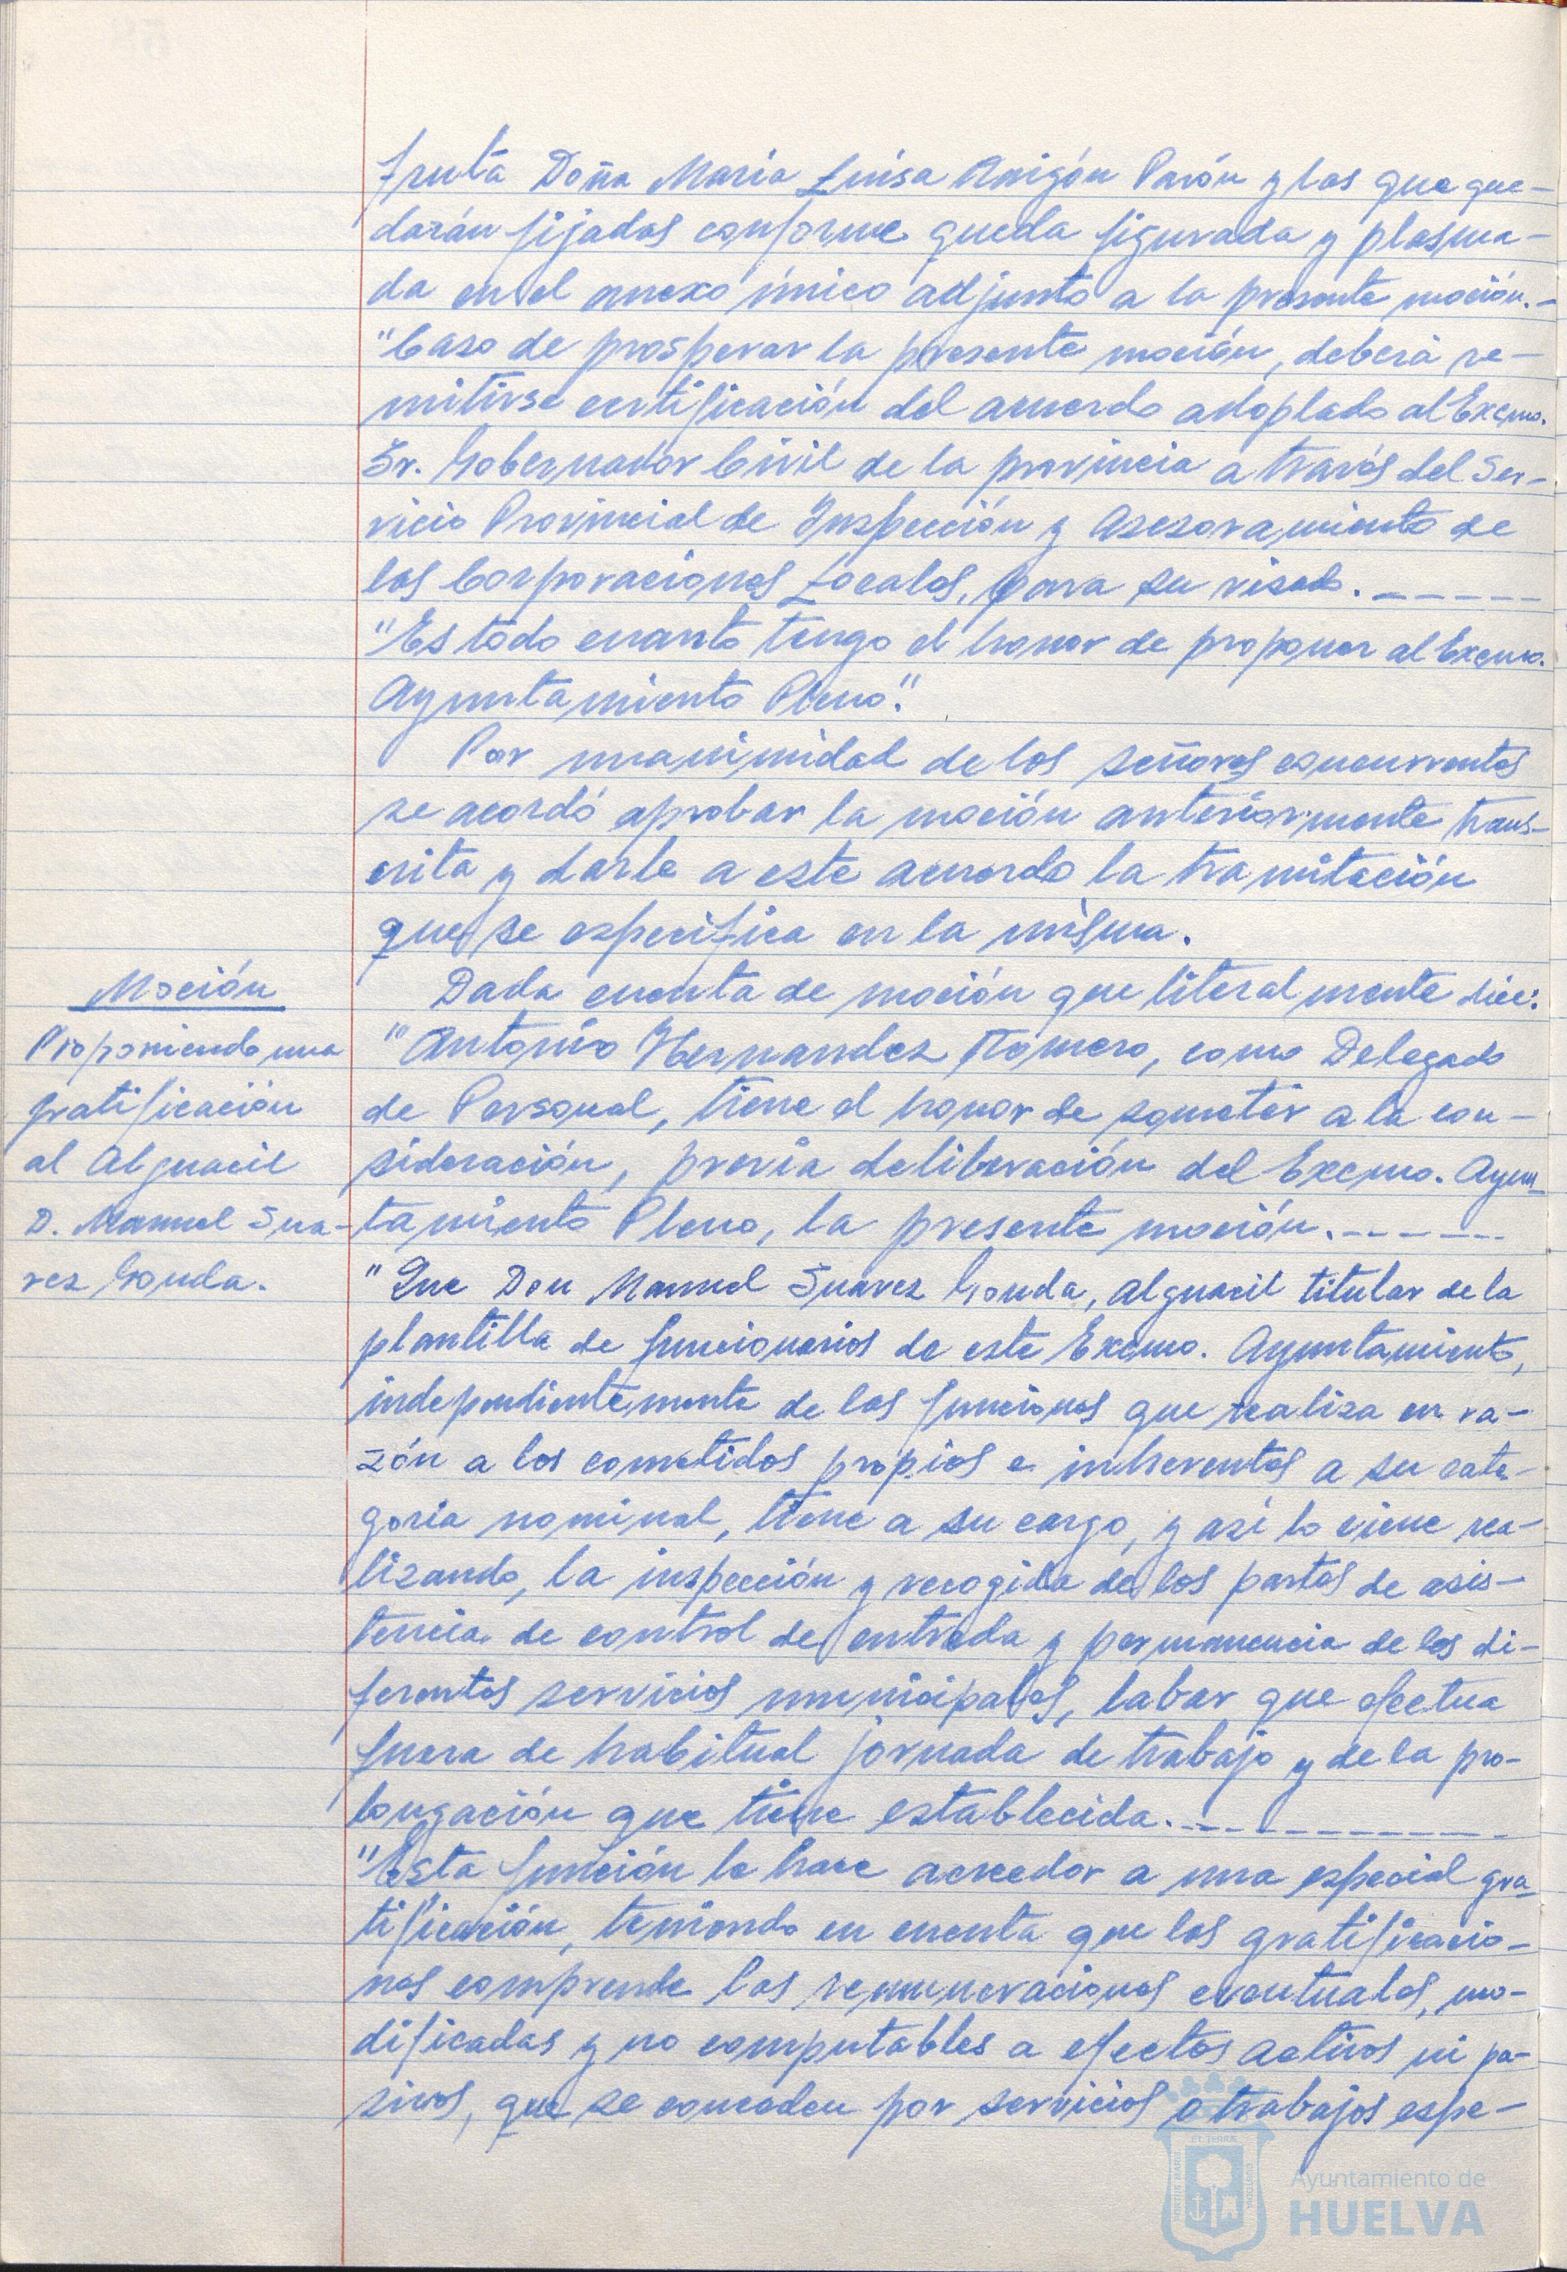 fruta Doña María Luisa Anigón Pavón y las que que-
darán fijadas conforme queda figurada y plasma-
da en el anexo único adjunto a la presente moción.-
"Caso de prosperar la presente moción, deberá re-
mitirse certificación del acuerdo adoptado al Excmo.
Sr. Gobernador Civil de la provincia a través del Ser-
vicio Provincial de Inspección y Asesoramiento de
las Corporaciones Locales, para su visado. - - - - -
"Es todo cuanto tengo el honor de proponer al Excmo.
Ayuntamiento Pleno".
Por unanimidad de los señores concurrentes
se acordó aprobar la moción anteriormente trans-
crita y darle a este acuerdo la tramitación
que se especifica en la misma.
Moción
Proponiendo una
gratificación
al Alguacil
D. Manuel Sua-
rez Gonda.
Dada cuenta de moción que literalmente dice:
"Antonio Hernandez Romero, como Delegado
de Personal, tiene el honor de someter a la con-
sideración, previa deliberación del Excmo. Ayun-
tamiento Pleno, la presente moción. - - - - -
"Que Don Manuel Suarez Gonda, alguacil titular de la
plantilla de funcionarios de este Excmo. Ayuntamiento,
independientemente de las funciones que realiza en ra-
zón a los cometidos propios e inherentes a su cate-
goria nominal, tiene a su cargo, y así lo viene rea-
lizando, la inspección y recogida de los partes de asis-
tencia de control de entrada y permanencia de los di-
ferentes servicios municipales, labor que efectua
fuera de habitual jornada de trabajo y de la pro-
longación que tiene establecida. - - - - - - - -
"Esta función le hace acreedor a una especial gra-
tificación, teniendo en cuenta que las gratificacio-
nes comprende las remuneraciones eventuales, mo-
dificadas y no computables a efectos activos ni pa-
sivos, que se conceden por servicios o trabajos espe-
Ayuntamiento de
HUELVA